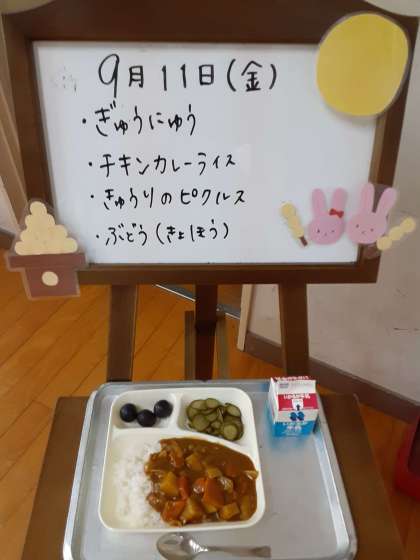 9月11日(金)
・ぎゅうにゅう
・チキンカレーライス
・きゅうりのピクルス
・ぶどう(きょほう)